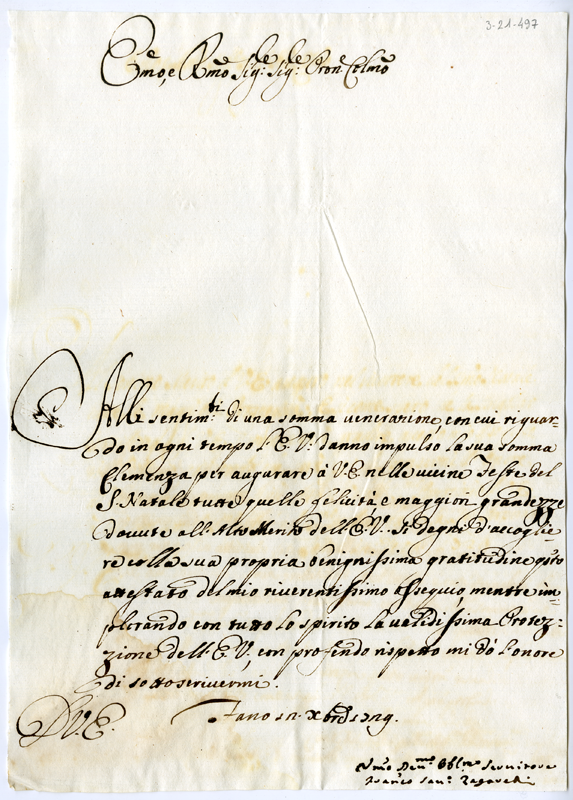 3-21-497
Emo, e Rmo Sigre Sigre Pron Colmo
Alli sentimti di una somma venerazione, con cui riguar=
do in ogni tempo l'E. V. danno impulso la sua somma
Clemenza per augurare à V. E. nelle vicine Feste del
S. Natale tutte quelle felicità e maggiori grandezze
dovute all'Alto Merito dell'E. V. Si degni d'accoglie
re colla sua propria benignissima gratitudine qsto
attestato del mio riverentissimo ossequio mentre im=
plorando con tutto lo spirito la validissima Protez=
zione dell'E. V., con profondo rispetto mi dò l'onore
di sottoscrivermi.
D V. E.
Fano
Servitore
Franco